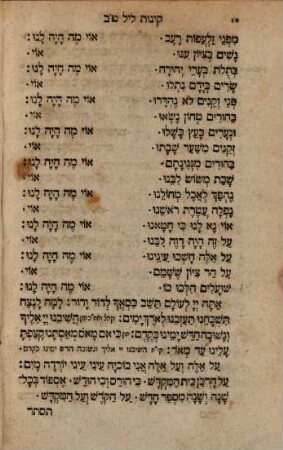 קינות ליל ט׳ב
מִפְּנֵי זַלְעֲפוֹת רָעָב · אוֹי מֶה הָיָה לָנוּ :
נָשִׁים בְּצִיּוֹן עִנּוּ · אוֹי ·
בְּתֻלוֹת בְּעָרֵי יְהוּדָה · אוֹי מֶה הָיָה לָנוּ :
שָׂרִים בְּיָדָם נִתְלוּ · אוֹי ·
פְּנֵי זְקֵנִים לֹא נֶהְדָּרוּ · אוֹי מֶה הָיָה לָנוּ :
בַּחוּרִים טְחוֹן נָשָׂאוּ · אוֹי ·
וּנְעָרִים בָּעֵץ כָּשָׁלוּ · אוֹי מֶה הָיָה לָנוּ :
זְקֵנִים מִשַּׁעַר שָׁבָתוּ · אוֹי ·
בַּחוּרִים מִנְּגִינָתָם · אוֹי מֶה הָיָה לָנוּ :
שָׁבַת מְשׂוֹשׂ לִבֵּנוּ · אוֹי ·
נֶהְפַּךְ לְאֵבֶל מְחוֹלֵנוּ · אוֹי מֶה הָיָה לָנוּ :
נָפְלָה עֲטֶרֶת רֹאשֵׁנוּ · אוֹי ·
אוֹי נָא לָנוּ כִּי חָטָאנוּ · אוֹי מֶה הָיָה לָנוּ :
עַל זֶה הָיָה דָוֶה לִבֵּנוּ · אוֹי ·
עַל אֵלֶּה חָשְׁכוּ עֵינֵינוּ · אוֹי מֶה הָיָה לָנוּ :
עַל הַר צִיּוֹן שֶׁשָּׁמֵם · אוֹי ·
שׁוּעָלִים הִלְּכוּ בוֹ · אוֹי מֶה הָיָה לָנוּ :
אַתָּה יְיָ לְעוֹלָם תֵּשֵׁב כִּסְאֲךָ לְדוֹר וָדוֹר : לָמָּה לָנֶצַח
תִּשְׁכָּחֵנוּ תַּעַזְבֵנוּ לְאֹרֶךְ יָמִים : הֲשִׁיבֵנוּ יְיָ אֵלֶיךָ
וְנָשׁוּבָה חַדֵּשׁ יָמֵינוּ כְּקֶדֶם : כִּי אִם מָאֹס מְאַסְתָּנוּ קָצַפְתָּ
עָלֵינוּ עַד מְאֹד : השיבנו יי אליך ונשובה חדש ימינו כקדם ·
עַל אֵלֶּה וְעַל אֵלֶּה אֲנִי בוֹכִיָּה עֵינִי עֵינִי יוֹרְדָה מַּיִם :
עַל חֻרְבַּן בֵּית הַמִּקְדָּשׁ · בְּכָל־
שָׁנָה וְשָׁנָה מִסְפֵּד חָדָשׁ · עַל הַקֹּדֶשׁ וְעַל הַמִּקְדָּשׁ ·
הסתר